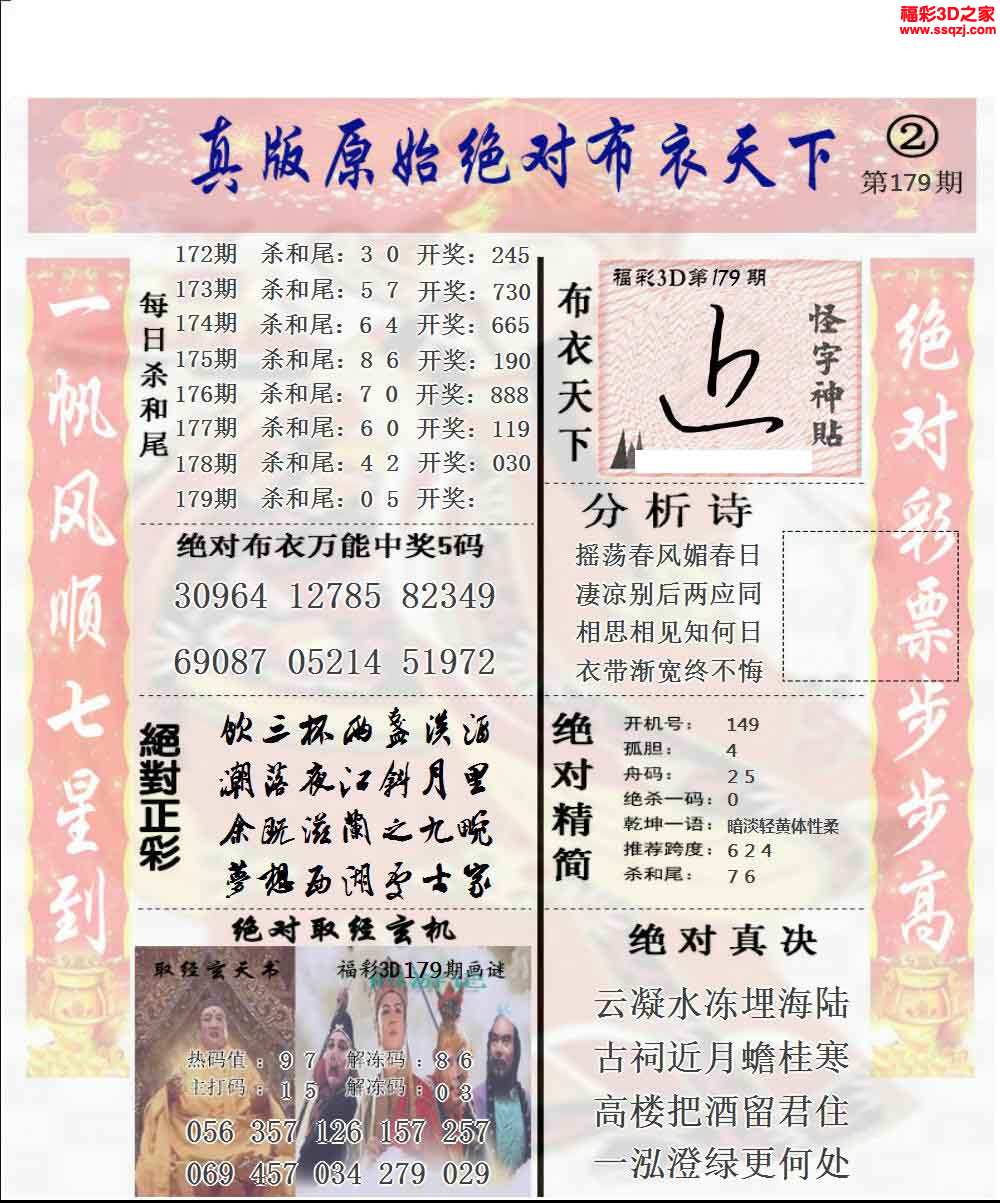 福彩3D之家
www.ssqzj.com
真版原始绝对布衣天下
②
第179期
一帆风顺七星到
每日杀和尾
172期 杀和尾：3 0 开奖：245
173期 杀和尾：5 7 开奖：730
174期 杀和尾：6 4 开奖：665
175期 杀和尾：8 6 开奖：190
176期 杀和尾：7 0 开奖：888
177期 杀和尾：6 0 开奖：119
178期 杀和尾：4 2 开奖：030
179期 杀和尾：0 5 开奖：
绝对布衣万能中奖5码
30964 12785 82349
69087 05214 51972
絕對正彩
饮三杯两盏淡酒
潮落夜江斜月里
余既滋蘭之九畹
夢想西湖处士家
绝对取经玄机
取经玄天书
福彩3D179期画谜
热码值：9 7 解冻码：8 6
主打码：1 5 解冻码：0 3
056 357 126 157 257
069 457 034 279 029
布衣天下
福彩3D第179期
怪字神贴
分析诗
摇荡春风媚春日
凄凉别后两应同
相思相见知何日
衣带渐宽终不悔
绝对精简
开机号： 149
孤胆： 4
舟码： 2 5
绝杀一码：0
乾坤一语：暗淡轻黄体性柔
推荐跨度：6 2 4
杀和尾： 7 6
绝对真决
云凝水冻埋海陆
古祠近月蟾桂寒
高楼把酒留君住
一泓澄绿更何处
绝对彩票步步高